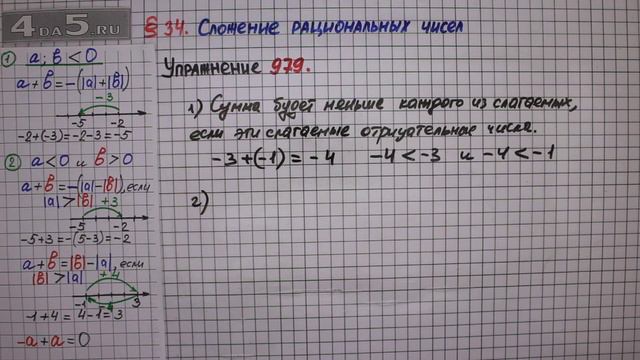 4DA5.RU
§ 34. Сложение рациональных чисел
1) a; b < 0
a + b = -(|a|+|b|)
-3
-5 -2
-2+(-3)=-2-3=-5
2) a<0 и b>0
a+b=-(|a|-|b|), если
|a|>|b| +3
-5 -2
-5+3=-(5-3)=-2
a+b=|b|-|a|, если
|b|>|a| +4
-1 3
-1+4=4-1=3
-a+a=0
Упражнение 979.
1) Сумма будет меньше каждого из слагаемых,
если эти слагаемые отрицательные числа.
-3+(-1)=-4 -4<-3 и -4<-1
2)